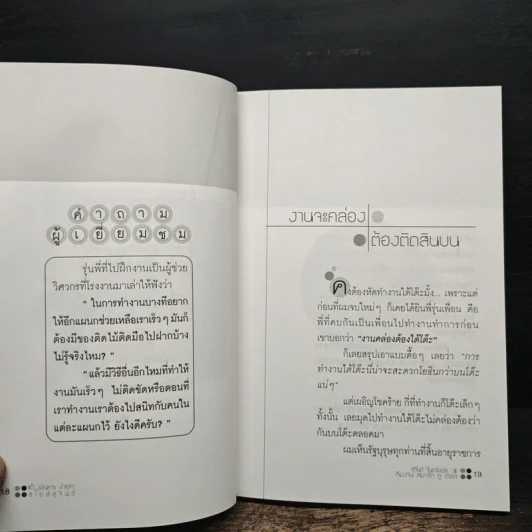 คำถาม
ผู้เยี่ยมชม
รุ่นพี่ที่ไปฝึกงานเป็นผู้ช่วย
วิศวกรที่โรงงานมาเล่าให้ฟังว่า
" ในการทำงานบางทีอยาก
ให้อีกแผนกช่วยเหลือเราเร็วๆ มันก็
ต้องมีของติดไม้ติดมือไปฝากบ้าง
ไม่รู้จริงไหม? "
" แล้วมีวิธีอื่นอีกไหมที่ทำให้
งานมันเร็วๆ ไม่ติดขัดหรือตอนที่
เราทำงานเราต้องไปสนิทกับคนใน
แต่ละแผนกไว้ ยังไงดีครับ? "
18
งานจะคล่อง
ต้องติดสินบน
คงต้องหัดทำงานใต้โต๊ะมั้ง... เพราะแต่
ก่อนที่ผมจบใหม่ๆ ก็เคยได้ยินพี่รุ่นเพื่อน คือ
พี่ที่คบกันเป็นเพื่อนไปทำงานทำการก่อน
เขาบอกว่า "งานคล่องต้องใต้โต๊ะ"
ก็เลยสรุปเอาแบบดื้อๆ เลยว่า "การ
ทำงานใต้โต๊ะนี่น่าจะสะดวกโยธินกว่าบนโต๊ะ
แน่ๆ"
แต่เผอิญโชคร้าย ที่ที่ทำงานก็โต๊ะเล็กๆ
ทั้งนั้น เลยมุดไปทำงานใต้โต๊ะไม่คล่องต้องว่า
กันบนโต๊ะตลอดมา
ผมเห็นรัฐบุรุษทุกท่านที่สิ้นอายุราชการ
19